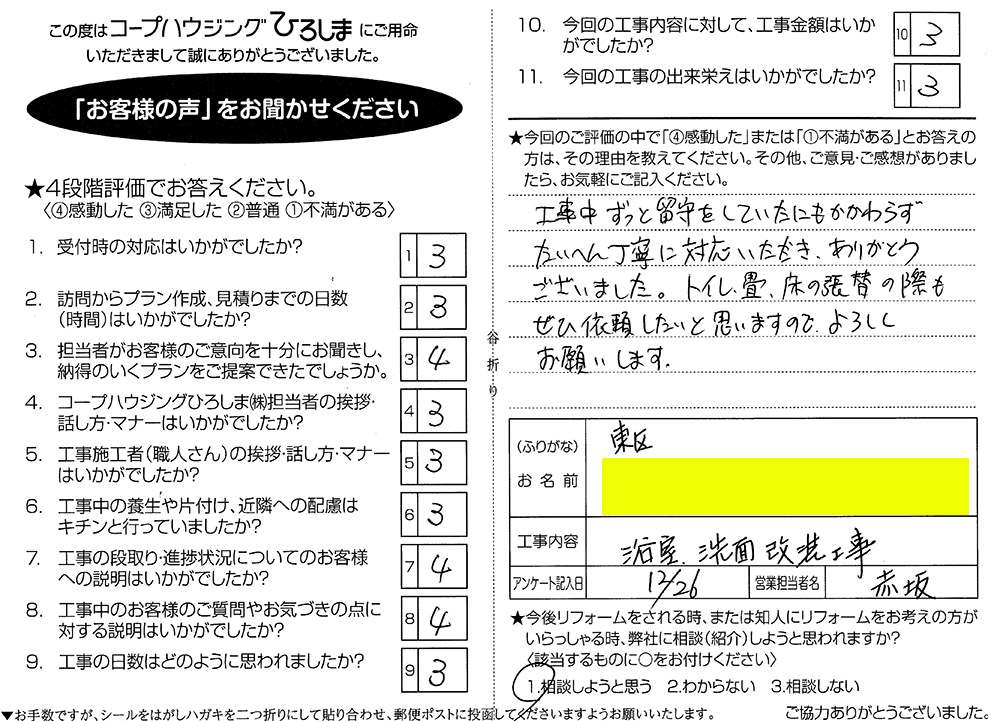 この度はコープハウジングひろしまにご用命
いただきまして誠にありがとうございました。
「お客様の声」をお聞かせください
★4段階評価でお答えください。
〈④感動した ③満足した ②普通 ①不満がある〉
1. 受付時の対応はいかがでしたか? 1 3
2. 訪問からプラン作成、見積りまでの日数
(時間)はいかがでしたか? 2 3
3. 担当者がお客様のご意向を十分にお聞きし、
納得のいくプランをご提案できたでしょうか。 3 4
4. コープハウジングひろしま㈱担当者の挨拶・
話し方・マナーはいかがでしたか? 4 3
5. 工事施工者(職人さん)の挨拶・話し方・マナー
はいかがでしたか? 5 3
6. 工事中の養生や片付け、近隣への配慮は
キチンと行っていましたか? 6 3
7. 工事の段取り・進捗状況についてのお客様
への説明はいかがでしたか? 7 4
8. 工事中のお客様のご質問やお気づきの点に
対する説明はいかがでしたか? 8 4
9. 工事の日数はどのように思われましたか? 9 3
▼お手数ですが、シールをはがしハガキを二つ折りにして貼り合わせ、郵便ポストに投函してくださいますようお願いいたします。
谷折り
10. 今回の工事内容に対して、工事金額はいか
がでしたか? 10 3
11. 今回の工事の出来栄えはいかがでしたか? 11 3
★今回のご評価の中で「④感動した」または「①不満がある」とお答えの
方は、その理由を教えてください。その他、ご意見・ご感想がありまし
たら、お気軽にご記入ください。
工事中ずっと留守をしていたにもかかわらず
たいへん丁寧に対応いただき、ありがとう
ございました。トイレ、畳、床の張替の際も
ぜひ依頼したいと思いますので、よろしく
お願いします。
(ふりがな)
お名前
東区
工事内容 浴室、洗面改造工事
アンケート記入日 12/26 営業担当者名 赤坂
★今後リフォームをされる時、または知人にリフォームをお考えの方が
いらっしゃる時、弊社に相談(紹介)しようと思われますか?
〈該当するものに○をお付けください〉
1.相談しようと思う 2.わからない 3.相談しない
ご協力ありがとうございました。